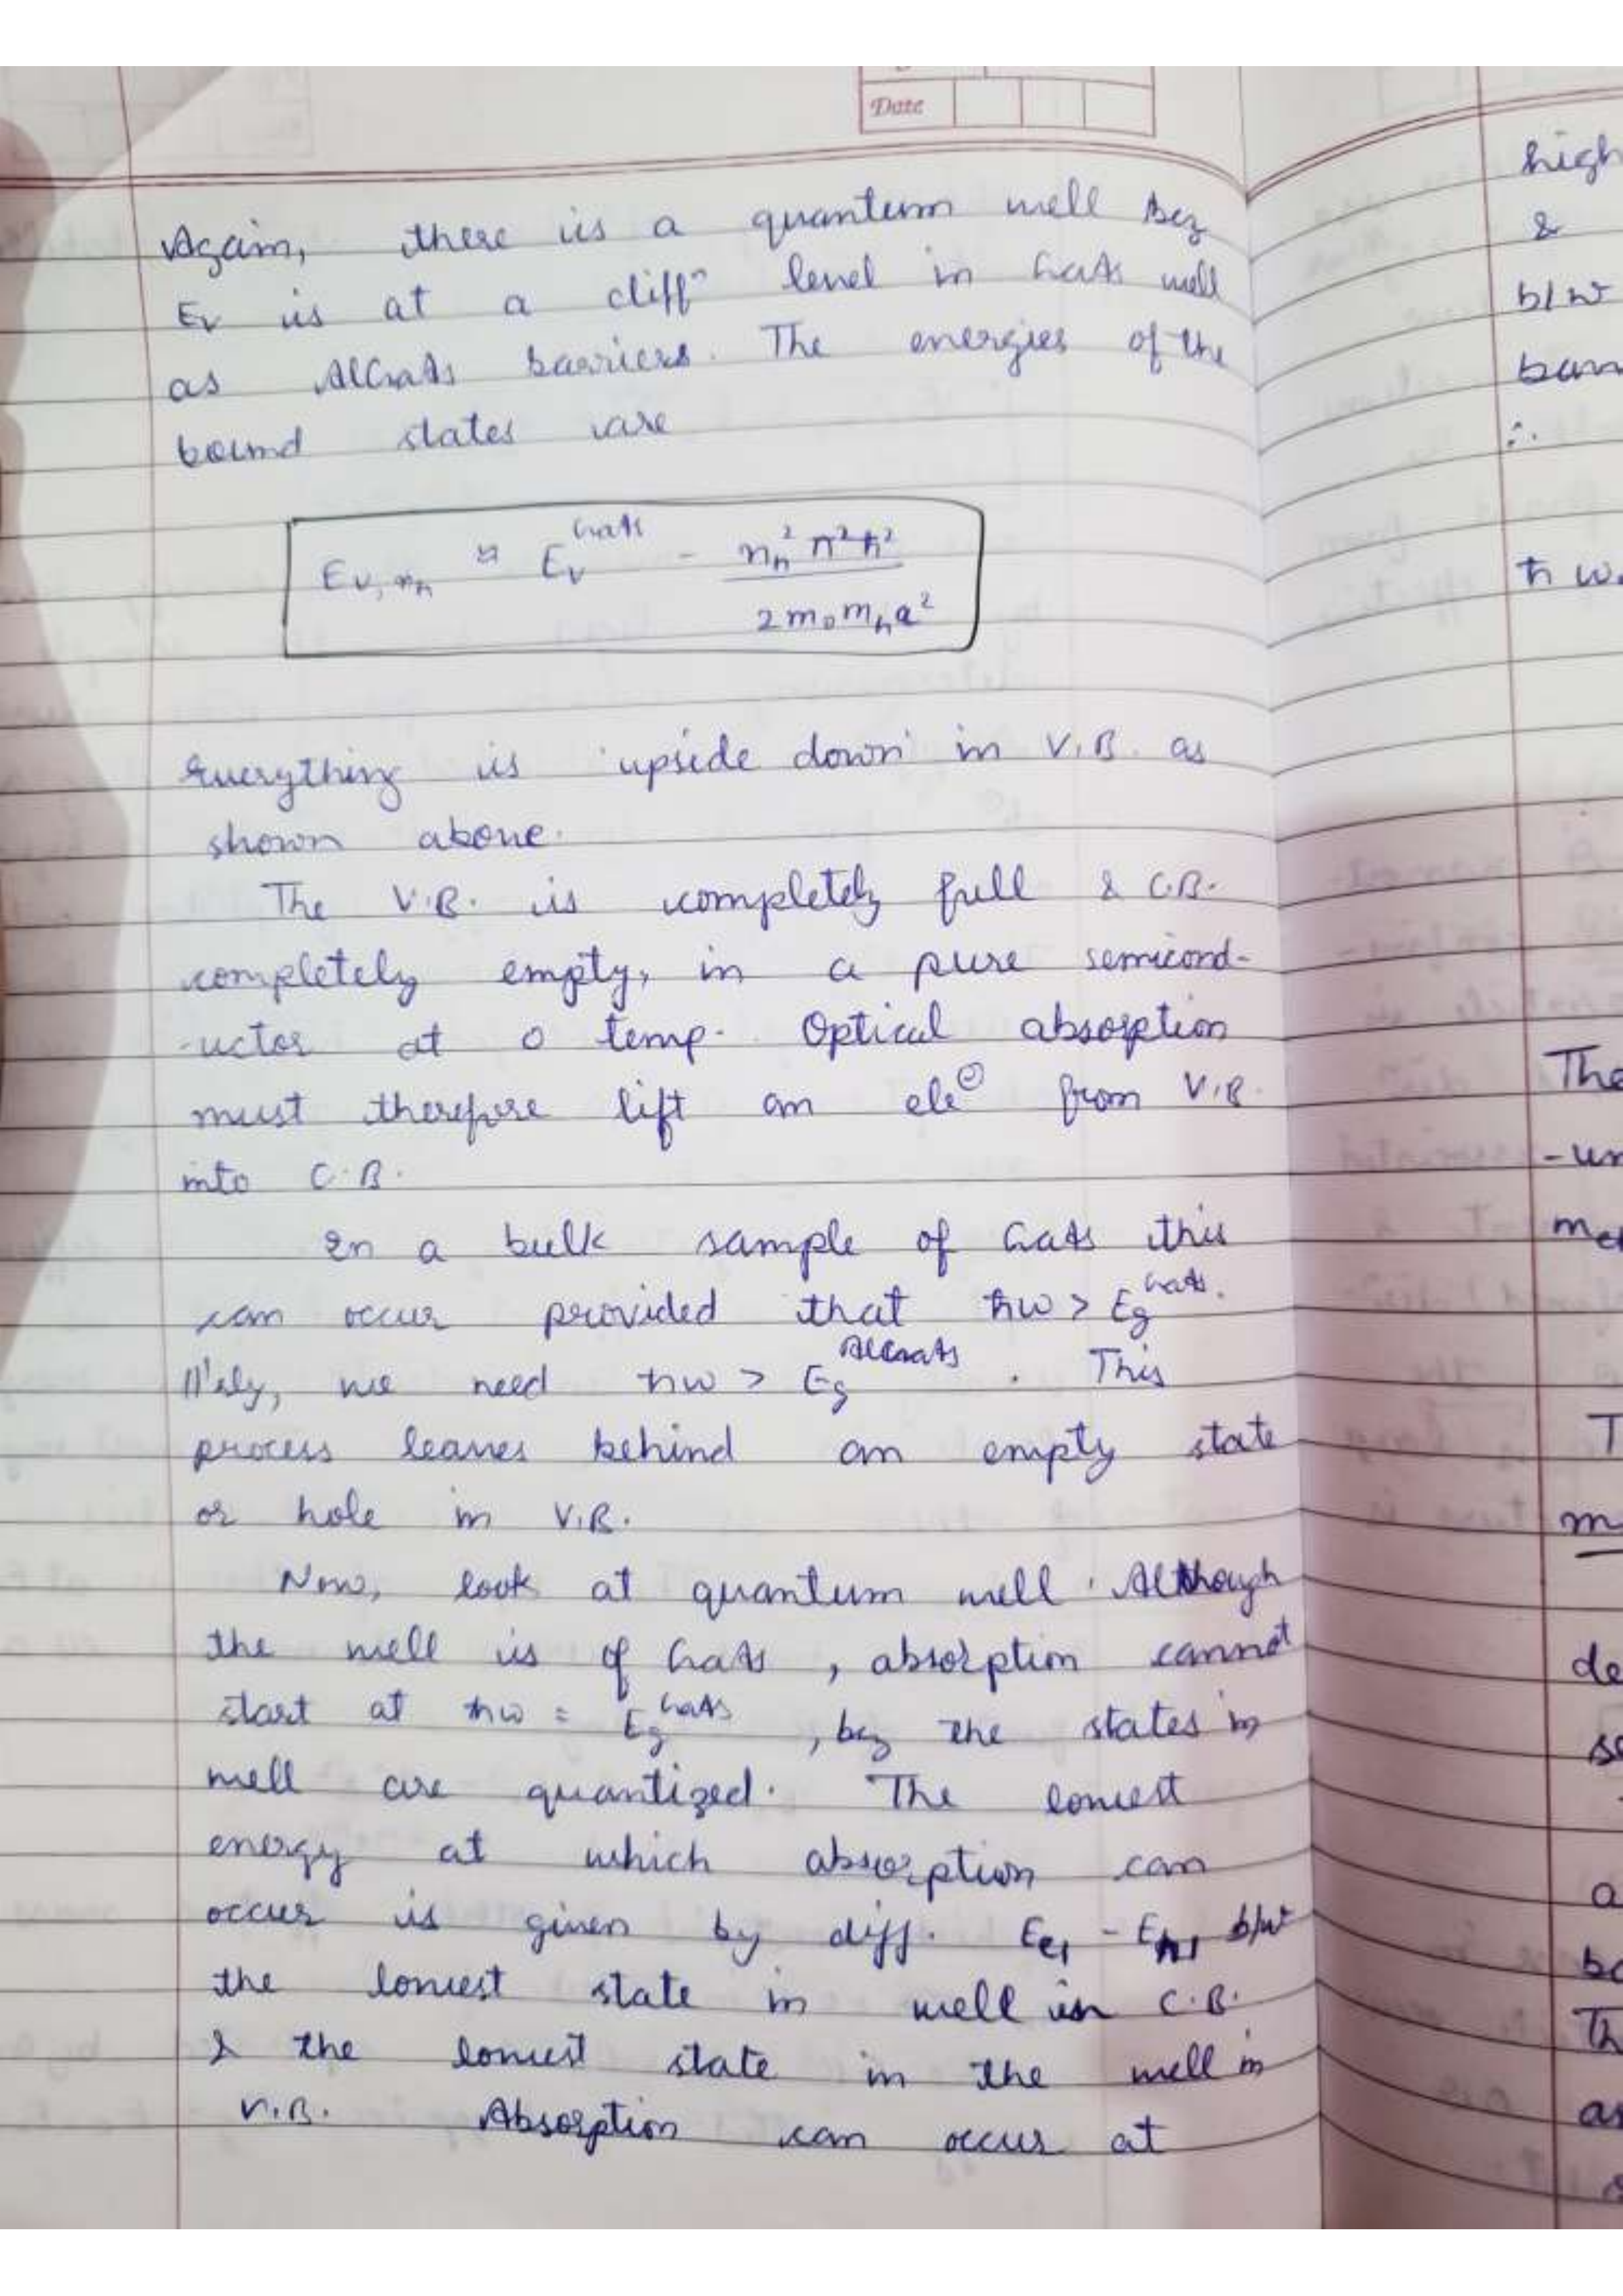 Date
Again, there is a quantum well Bcz
Ev is at a diffⁿ level in GaAs well
as AlGaAs barriers. The energies of the
bound states are
E_{v,n_h} ≈ E_v^{GaAs} - n_h² π² ħ² / 2 m₀ m_h a²
Everything is 'upside down' in V.B. as
shown above.
The V.B. is completely full & C.B.
completely empty, in a pure semicond-
-uctor at 0 temp. Optical absorption
must therefore lift an ele⊖ from V.B.
into C.B.
In a bulk sample of GaAs this
can occur provided that ħω > E_g^{GaAs}.
||'ly, we need ħω > E_g^{AlGaAs}. This
process leaves behind an empty state
or hole in V.B.
Now, look at quantum well. Although
the well is of GaAs, absorption cannot
start at ħω = E_g^{GaAs}, bcz the states in
well are quantized. The lowest
energy at which absorption can
occur is given by diff. E_{e1} - E_{h1} b/w
the lowest state in well in C.B.
& the lowest state in the well in
V.B. Absorption can occur at
high
&
b/w
∴
ħω
The
T
de
a
Th
as